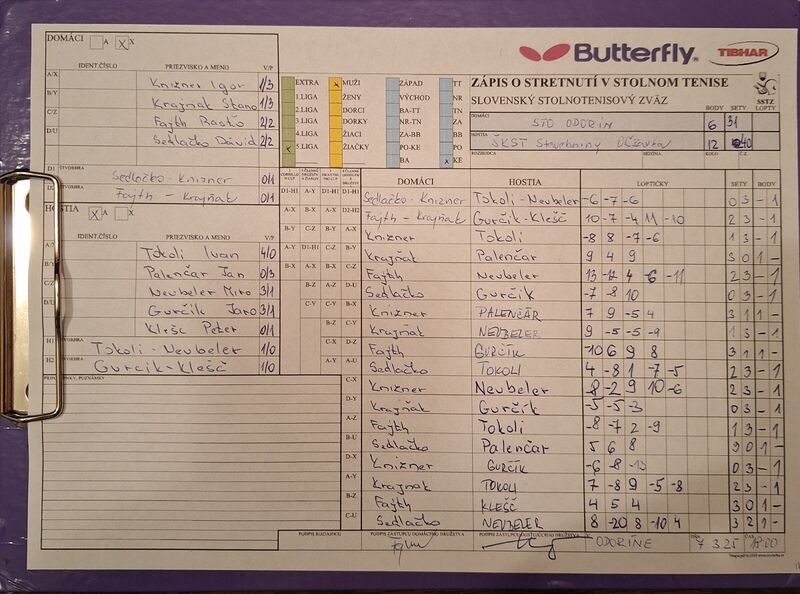 DOMÁCI A X
IDENT.ČÍSLO PRIEZVISKO A MENO V/P
A/X Knizner Igor 1/3
B/Y Krajňák Stano 1/3
C/Z Fajth Rastko 2/2
D/U Sedlačko Dávid 2/2
D1 ŠTVORHRA Sedlačko-Knizner 0/1
D2 Fajth - Krajňák 0/1
HOSTIA X X
IDENT.ČÍSLO PRIEZVISKO A MENO V/P
Tokoli Ivan 4/0
Palenčar Jan 0/3
Neubeler Miro 3/1
Gurčík Jaro 3/1
Klešc Peter 0/1
H1 ŠTVORHRA Tokoli - Neubeler 1/0
H2 ŠTVORHRA Gurčík-Klešč 1/0
PRIPOMIENKY, POZNÁMKY
EXTRA MUŽI ZÁPAD TT
1.LIGA ŽENY VÝCHOD NR
2.LIGA DORCI BA-TT TN
3.LIGA DORKY NR-TN ZA
4.LIGA ŽIACI ZA-BB BB
5.LIGA ŽIAČKY PO-KE PO
BA KE
Butterfly TIBHAR
ZÁPIS O STRETNUTÍ V STOLNOM TENISE
SLOVENSKÝ STOLNOTENISOVÝ ZVÄZ
SSTZ
BODY SETY LOPTY
DOMÁCI STO ODORÍN 6 31
HOSTIA ŠKST Stavebniny 12 40
ROZHODCA SEZÓNA KOLO Č.Z.
DOMÁCI HOSTIA LOPTIČKY SETY BODY
D1-H1 A-Y A-X D1-H1 Sedlačko - Knizner Tokoli-Neubeler -6 -7 -6 0 3 - 1
A-X B-X B-Y D2-H2 Fajth - Krajňák Gurčík-Klešč 10 -7 -4 11 -10 2 3 - 1
Knizner Tokoli -8 8 -7 -6 1 3 - 1
Krajňák Palenčar 9 4 9 3 0 1 -
Fajth Neubeler 13 -12 4 -6 -11 2 3 - 1
Sedlačko Gurčík -7 -8 10 0 3 - 1
Knizner PALENČÁR 7 9 -5 4 3 1 1 -
Krajňák NEUBELER 9 -5 -5 -9 1 3 - 1
Fajth GURČÍK -10 6 9 8 3 1 1 -
Sedlačko TOKOLI 4 -8 1 -7 -5 2 3 - 1
C-X Knizner Neubeler -8 -2 9 10 -6 2 3 - 1
D-Y Krajňák Gurčík -5 -5 -3 0 3 - 1
A-Z Fajth Tokoli -8 -7 2 -9 1 3 - 1
B-U Sedlačko Palenčar 5 6 8 3 0 1 -
D-X Knizner GURČÍK -6 -8 -13 0 3 - 1
A-Y Krajňak TOKOLI 7 -8 9 -5 -8 2 3 - 1
B-Z Fajth KLEŠČ 4 5 4 3 0 1 -
C-U Sedlačko NEUBELER 8 -20 8 -10 4 3 2 1 -
PODPIS ROZHODCU PODPIS ZÁSTUPCU DOMÁCEHO DRUŽSTVA PODPIS ZÁSTUPCU HOSŤUJÚCEHO DRUŽSTVA V ODORÍNE DŇA 7.3.25 ČAS 18:00